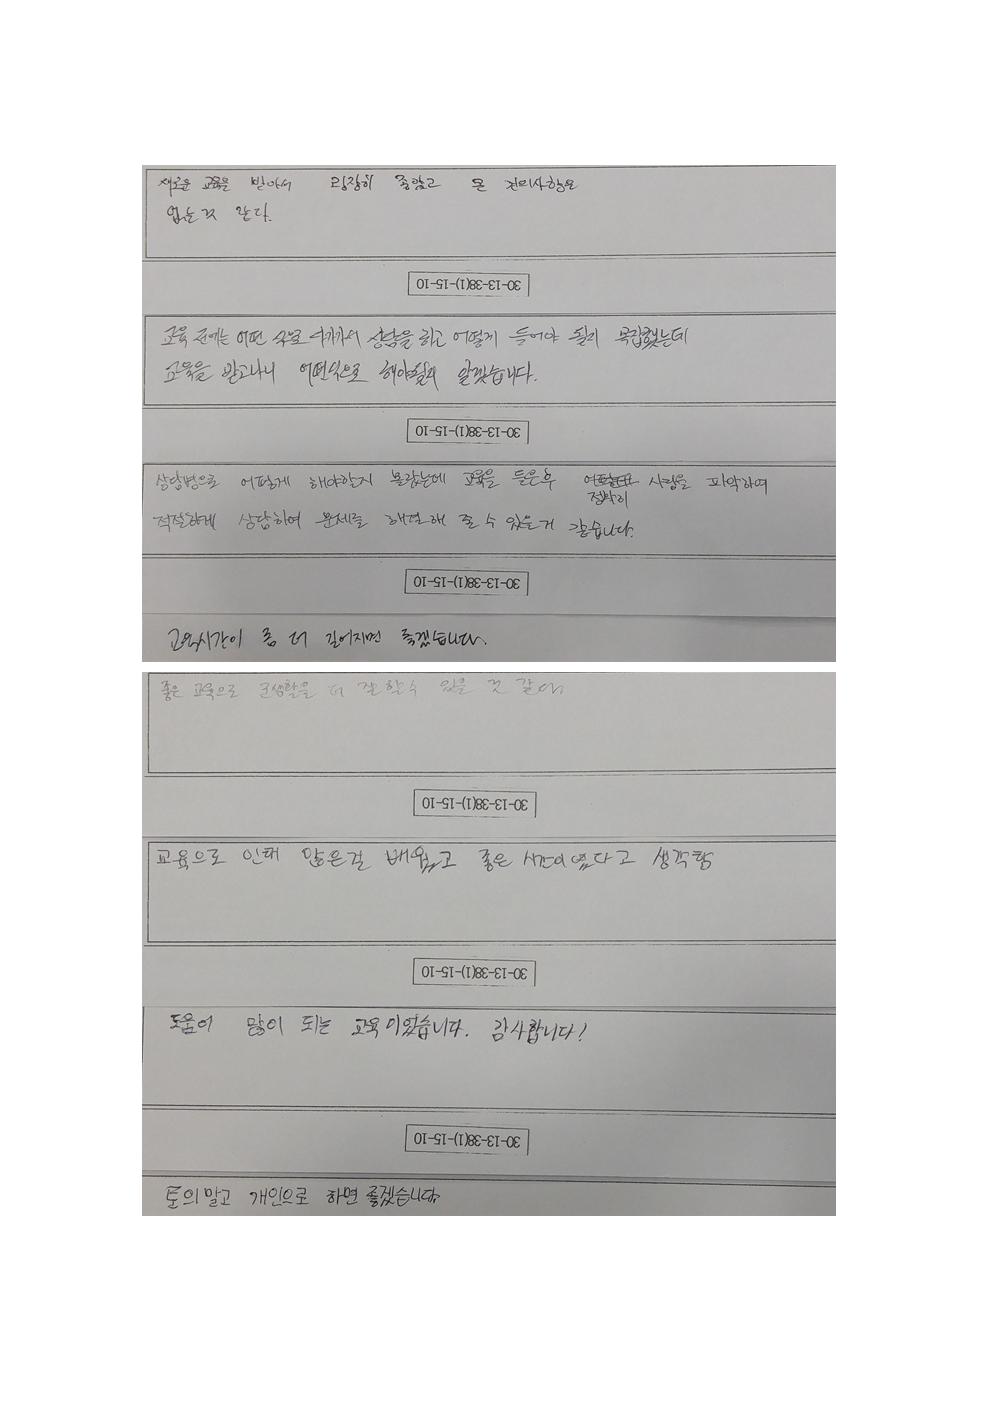 새로운 교육을 받아서 굉장히 좋았고 건의사항은
없는 것
30-13-38(1)-15-10
교육 전에는 어떤 다가가서 상담을 하고 어떻게 들어야 될지 복잡했는데
교육을 받고나니 어떤식으로 해야할지 알겠습니다.
30-13-38(1)-15-10
상담병으로 어떻게 해야할지 몰랐는데 교육을 들은후 사람을 파악하여
정확히
적절하게 상담하여 문제를 해결해 줄 수 있을거 같습니다.
30-13-38(1)-15-10
교육시간이 좀 더 길어지면 좋겠습니다.
좋은 교육으로 군생활을 더 잘할수 있을 것 같다
30-13-38(1)-15-10
교육으로 인해 많은걸 배웠고 좋은 시간이였다고 생각함
30-13-38(1)-15-10
도움이 많이 되는 교육이었습니다. 감사합니다!
30-13-38(1)-15-10
토의말고 개인으로 하면 좋겠습니다